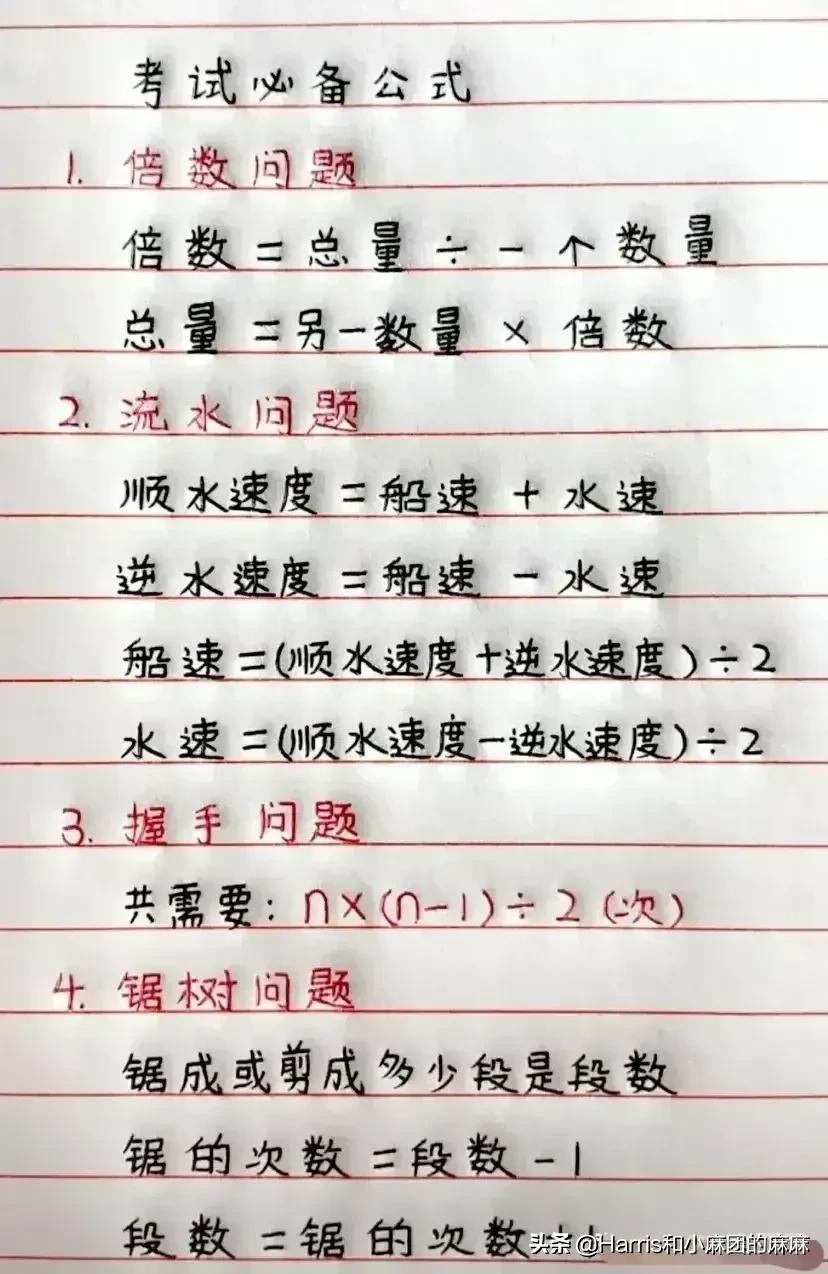 考试必备公式
1. 倍数问题
倍数=总量÷一个数量
总量=另一数量×倍数
2. 流水问题
顺水速度=船速+水速
逆水速度=船速-水速
船速=(顺水速度+逆水速度)÷2
水速=(顺水速度-逆水速度)÷2
3. 握手问题
共需要: n×(n-1)÷2(次)
4. 锯树问题
锯成或剪成多少段是段数
锯的次数=段数-1
段数=锯的次数
头条 @Harris和小麻团的麻麻